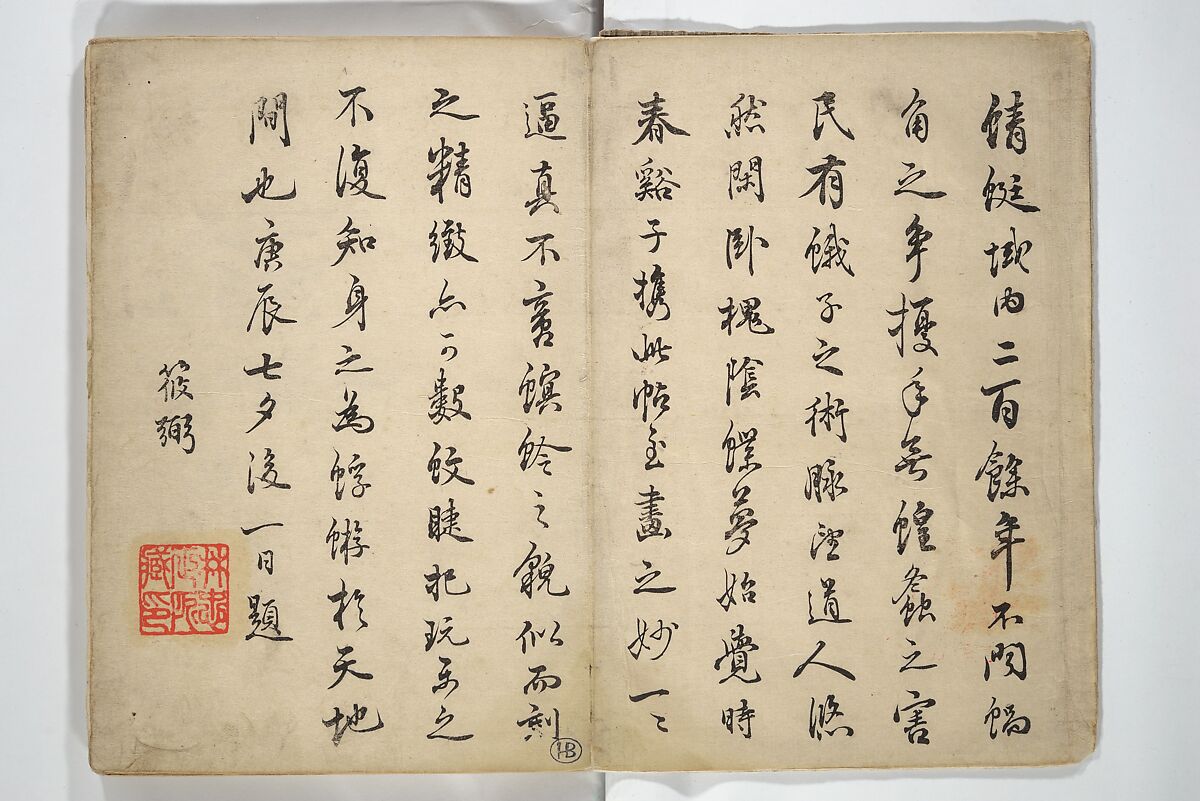 蜻蜓域内二百餘年不聞蝸
角之争擾年無蝗螽之害
民有蛾子之術脉望道人悠
然閑卧槐陰蝶夢始覺時
春谿子携此帖至畫之妙一〻
逼真不啻螟蛉之貌似而刻
之精緻亦可數蚊睫把玩樂之
不復知身之為蜉蝣於天地
間也庚辰七夕後一日題
筱弼
HB